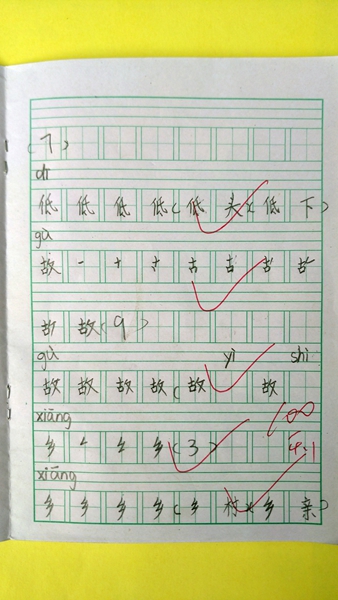 (7)
dī
低 低 低 低 ( 低 头 ) ( 低 下 )
gù
故 一 十 古 古 古
故 故 ( 9 )
gù yì shì
故 故 故 故 ( 故 故
xiāng
乡 乡 ( 3 )
100
4.1
xiāng
乡 乡 乡 乡 ( 乡 村 ) ( 乡 亲 )